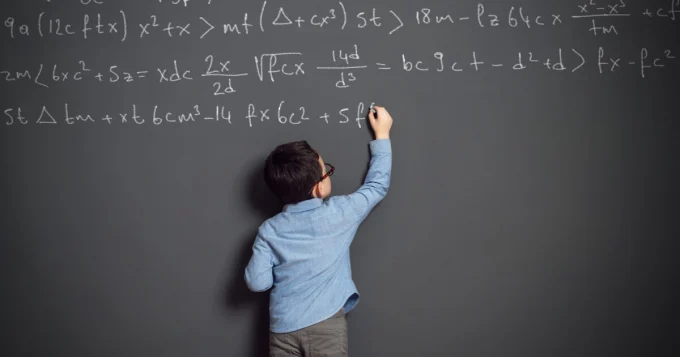 9a(12cftx) x²+x > mf(Δ+cx³) st > 18m - fz 64cx (x²-x³)/(tm) + cf
zm(6xc²+5z = xdc 2x/2d √fcx 14d/d³ = bc9ct - d²+d > fx - fc²
st Δ tm + xt 6cm³-14 fx 6c² + 5f